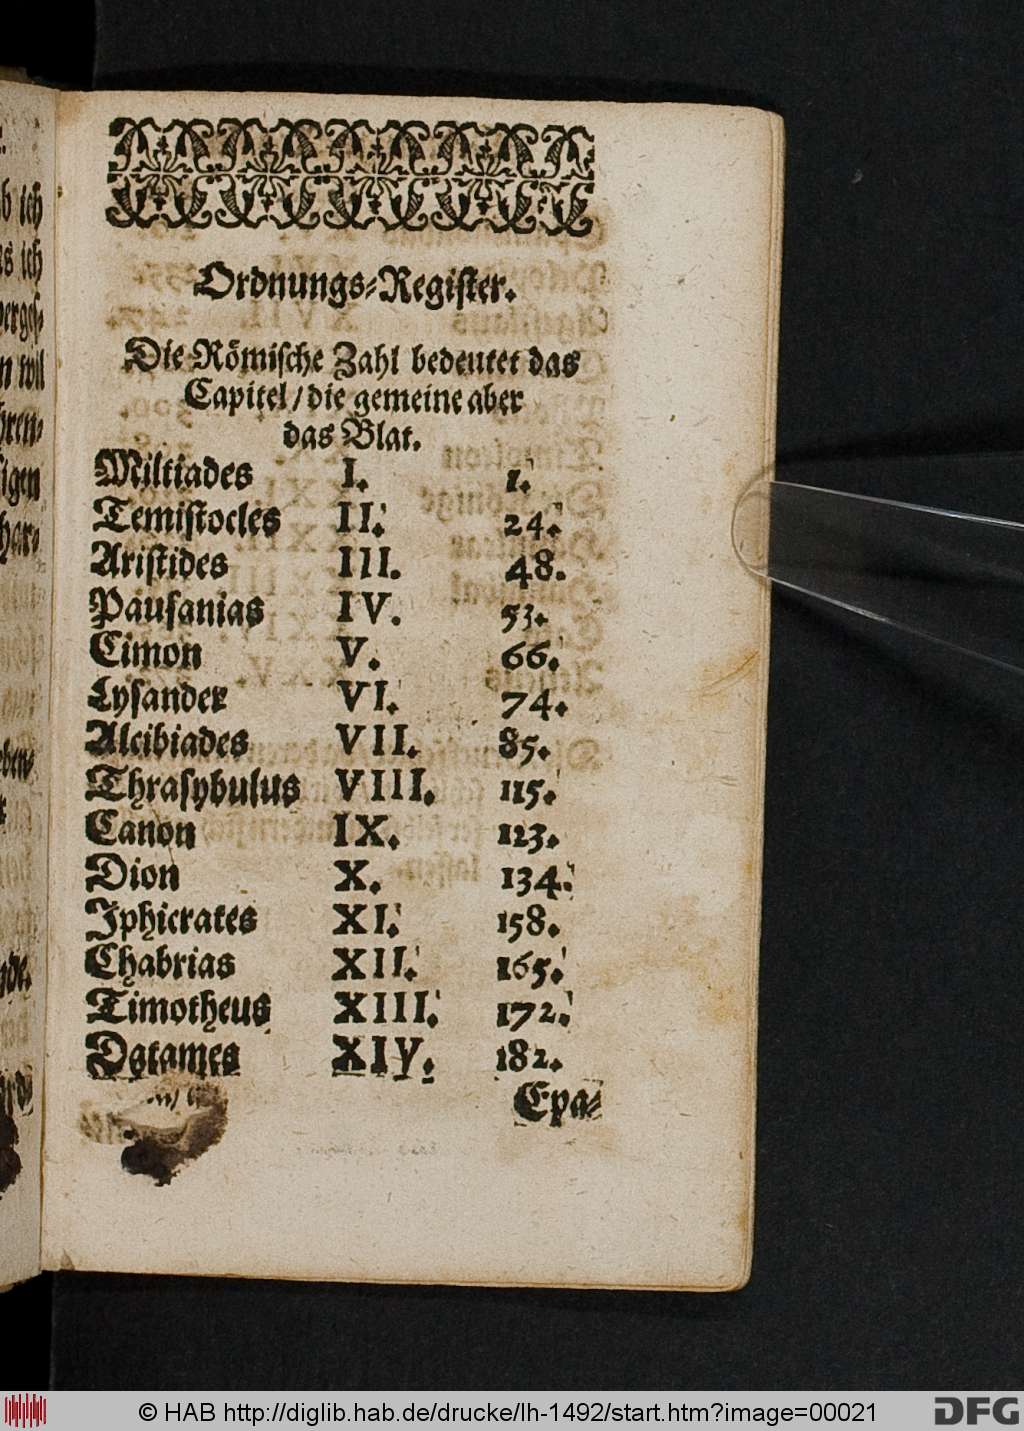 Ordnungs-Register.
Die Römische Zahl bedeutet das
Capitel/die gemeine aber
das Blat.
Miltiades I. 1.
Temistocles II. 24.
Aristides III. 48.
Pausanias IV. 53.
Cimon V. 66.
Lysander VI. 74.
Alcibiades VII. 85.
Thrasybulus VIII. 115.
Canon IX. 123.
Dion X. 134.
Iphicrates XI. 158.
Chabrias XII. 165.
Timotheus XIII. 172.
Datames XIV. 182.
Epa-
© HAB http://diglib.hab.de/drucke/lh-1492/start.htm?image=00021
DFG